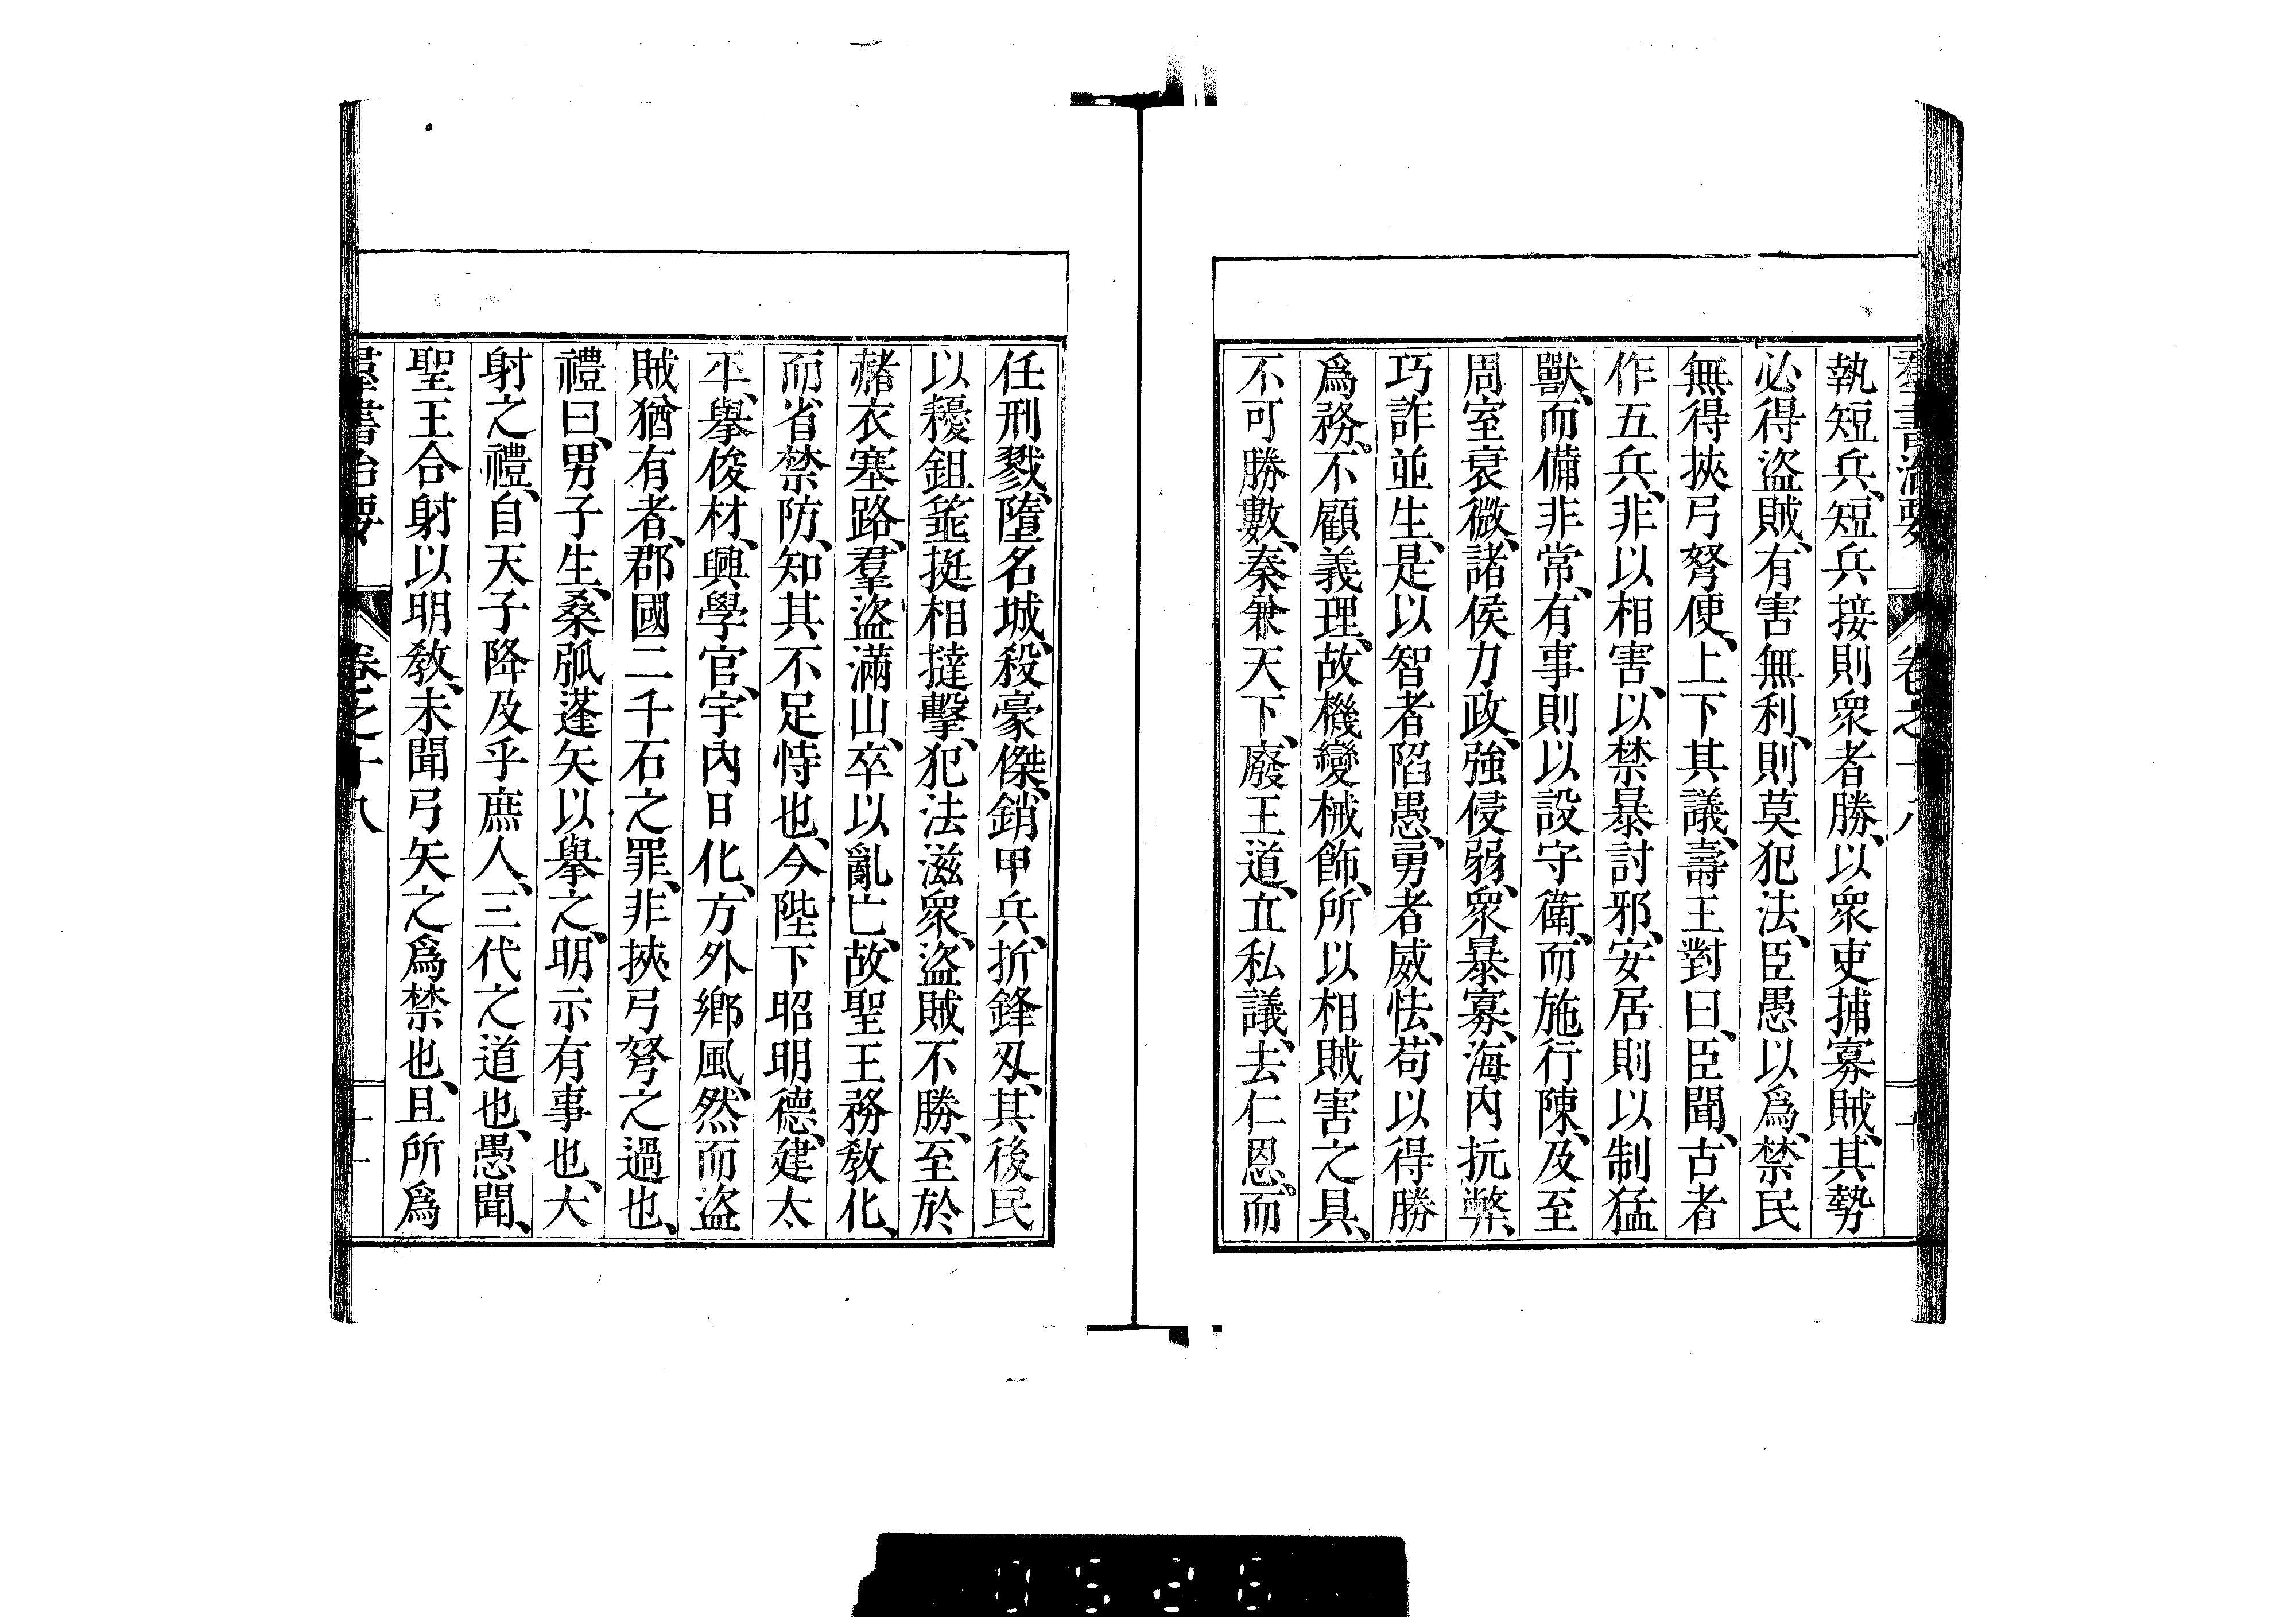 羣書治要 卷之十八
執短兵、短兵接則衆者勝、以衆吏捕寡賊、其勢
必得盜賊、有害無利、則莫犯法、臣愚以爲、禁民
無得挾弓弩便、上下其議、壽王對曰、臣聞、古者
作五兵、非以相害、以禁暴討邪、安居則以制猛
獸、而備非常、有事則以設守衛、而施行陳、及至
周室衰微、諸侯力政、強侵弱、衆暴寡、海內抏弊、
巧詐並生、是以智者陷愚、勇者威怯、苟以得勝
爲務、不顧義理、故機變械飾、所以相賊害之具、
不可勝數、秦兼天下、廢王道、立私議、去仁恩、而
任刑戮、墮名城、殺豪傑、銷甲兵、折鋒刄、其後民
以耰鉏箠挺相撻擊、犯法滋衆、盜賊不勝、至於
赭衣塞路、羣盜滿山、卒以亂亡、故聖王務敎化、
而省禁防、知其不足恃也、今陛下昭明德、建太
平、擧俊材、興學官、宇內日化、方外鄉風、然而盜
賊猶有者、郡國二千石之罪、非挾弓弩之過也、
禮曰、男子生、桑弧蓬矢以擧之、明示有事也、大
射之禮、自天子降及乎庶人、三代之道也、愚聞、
聖王合射以明敎、未聞弓矢之爲禁也、且所爲
羣書治要 卷之十八 十一
0526